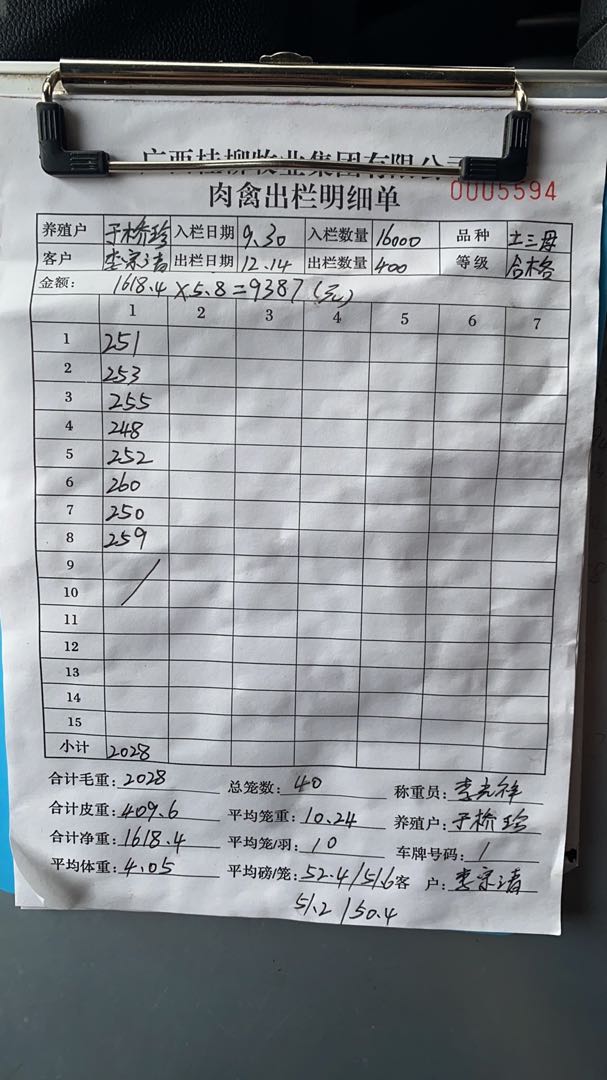 广西桂柳牧业集团有限公司
肉禽出栏明细单
0005594
养殖户 于桥珍 入栏日期 9.30 入栏数量 16000 品种 土三母
客户 李宗清 出栏日期 12.14 出栏数量 400 等级 合格
金额: 1618.4×5.8=9387(元)
1 2 3 4 5 6 7
1 251
2 253
3 255
4 248
5 252
6 260
7 250
8 259
9
10
11
12
13
14
15
小计 2028
合计毛重: 2028 总笼数: 40 称重员: 李光祥
合计皮重: 409.6 平均笼重: 10.24 养殖户: 于桥珍
合计净重: 1618.4 平均笼/羽: 10 车牌号码: 1
平均体重: 4.05 平均磅/笼: 52.4/51.6 客户: 李宗清
51.2/50.4